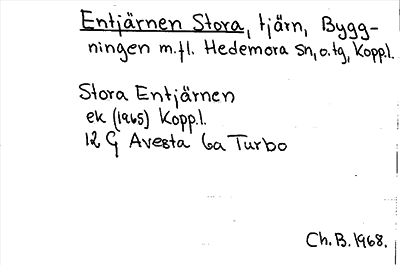 Entjärnen Stora, tjärn, Bygg-
ningen m.fl. Hedemora sn, o. tg, Kopp.l.
Stora Entjärnen
ek (1965) Kopp.l.
12 G Avesta 6a Turbo
Ch. B. 1968.